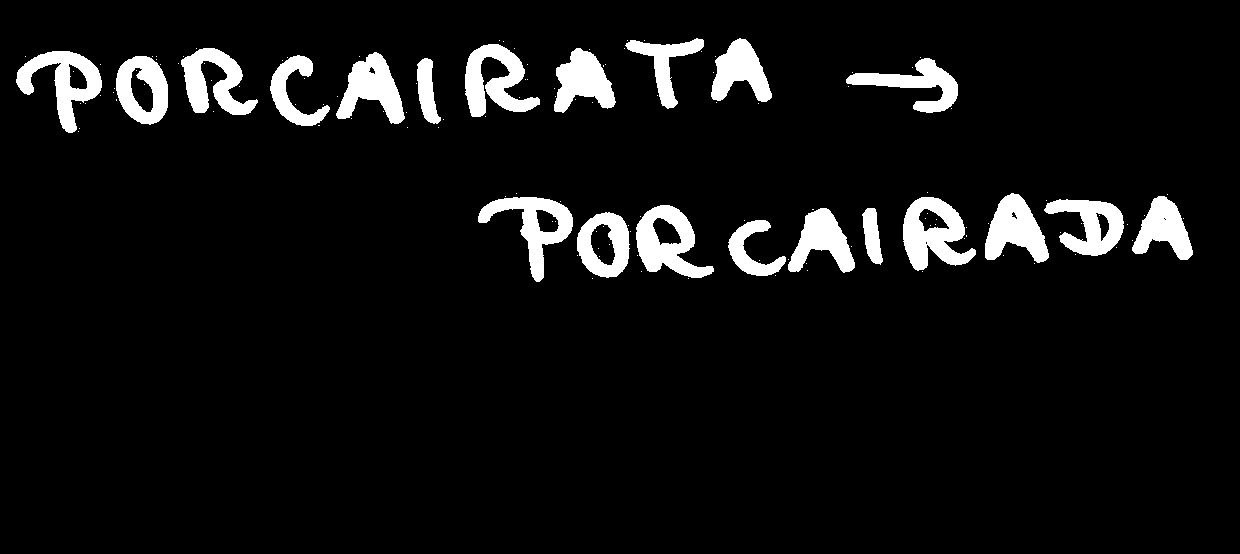 PORCAIRATA →
PORCAIRADA